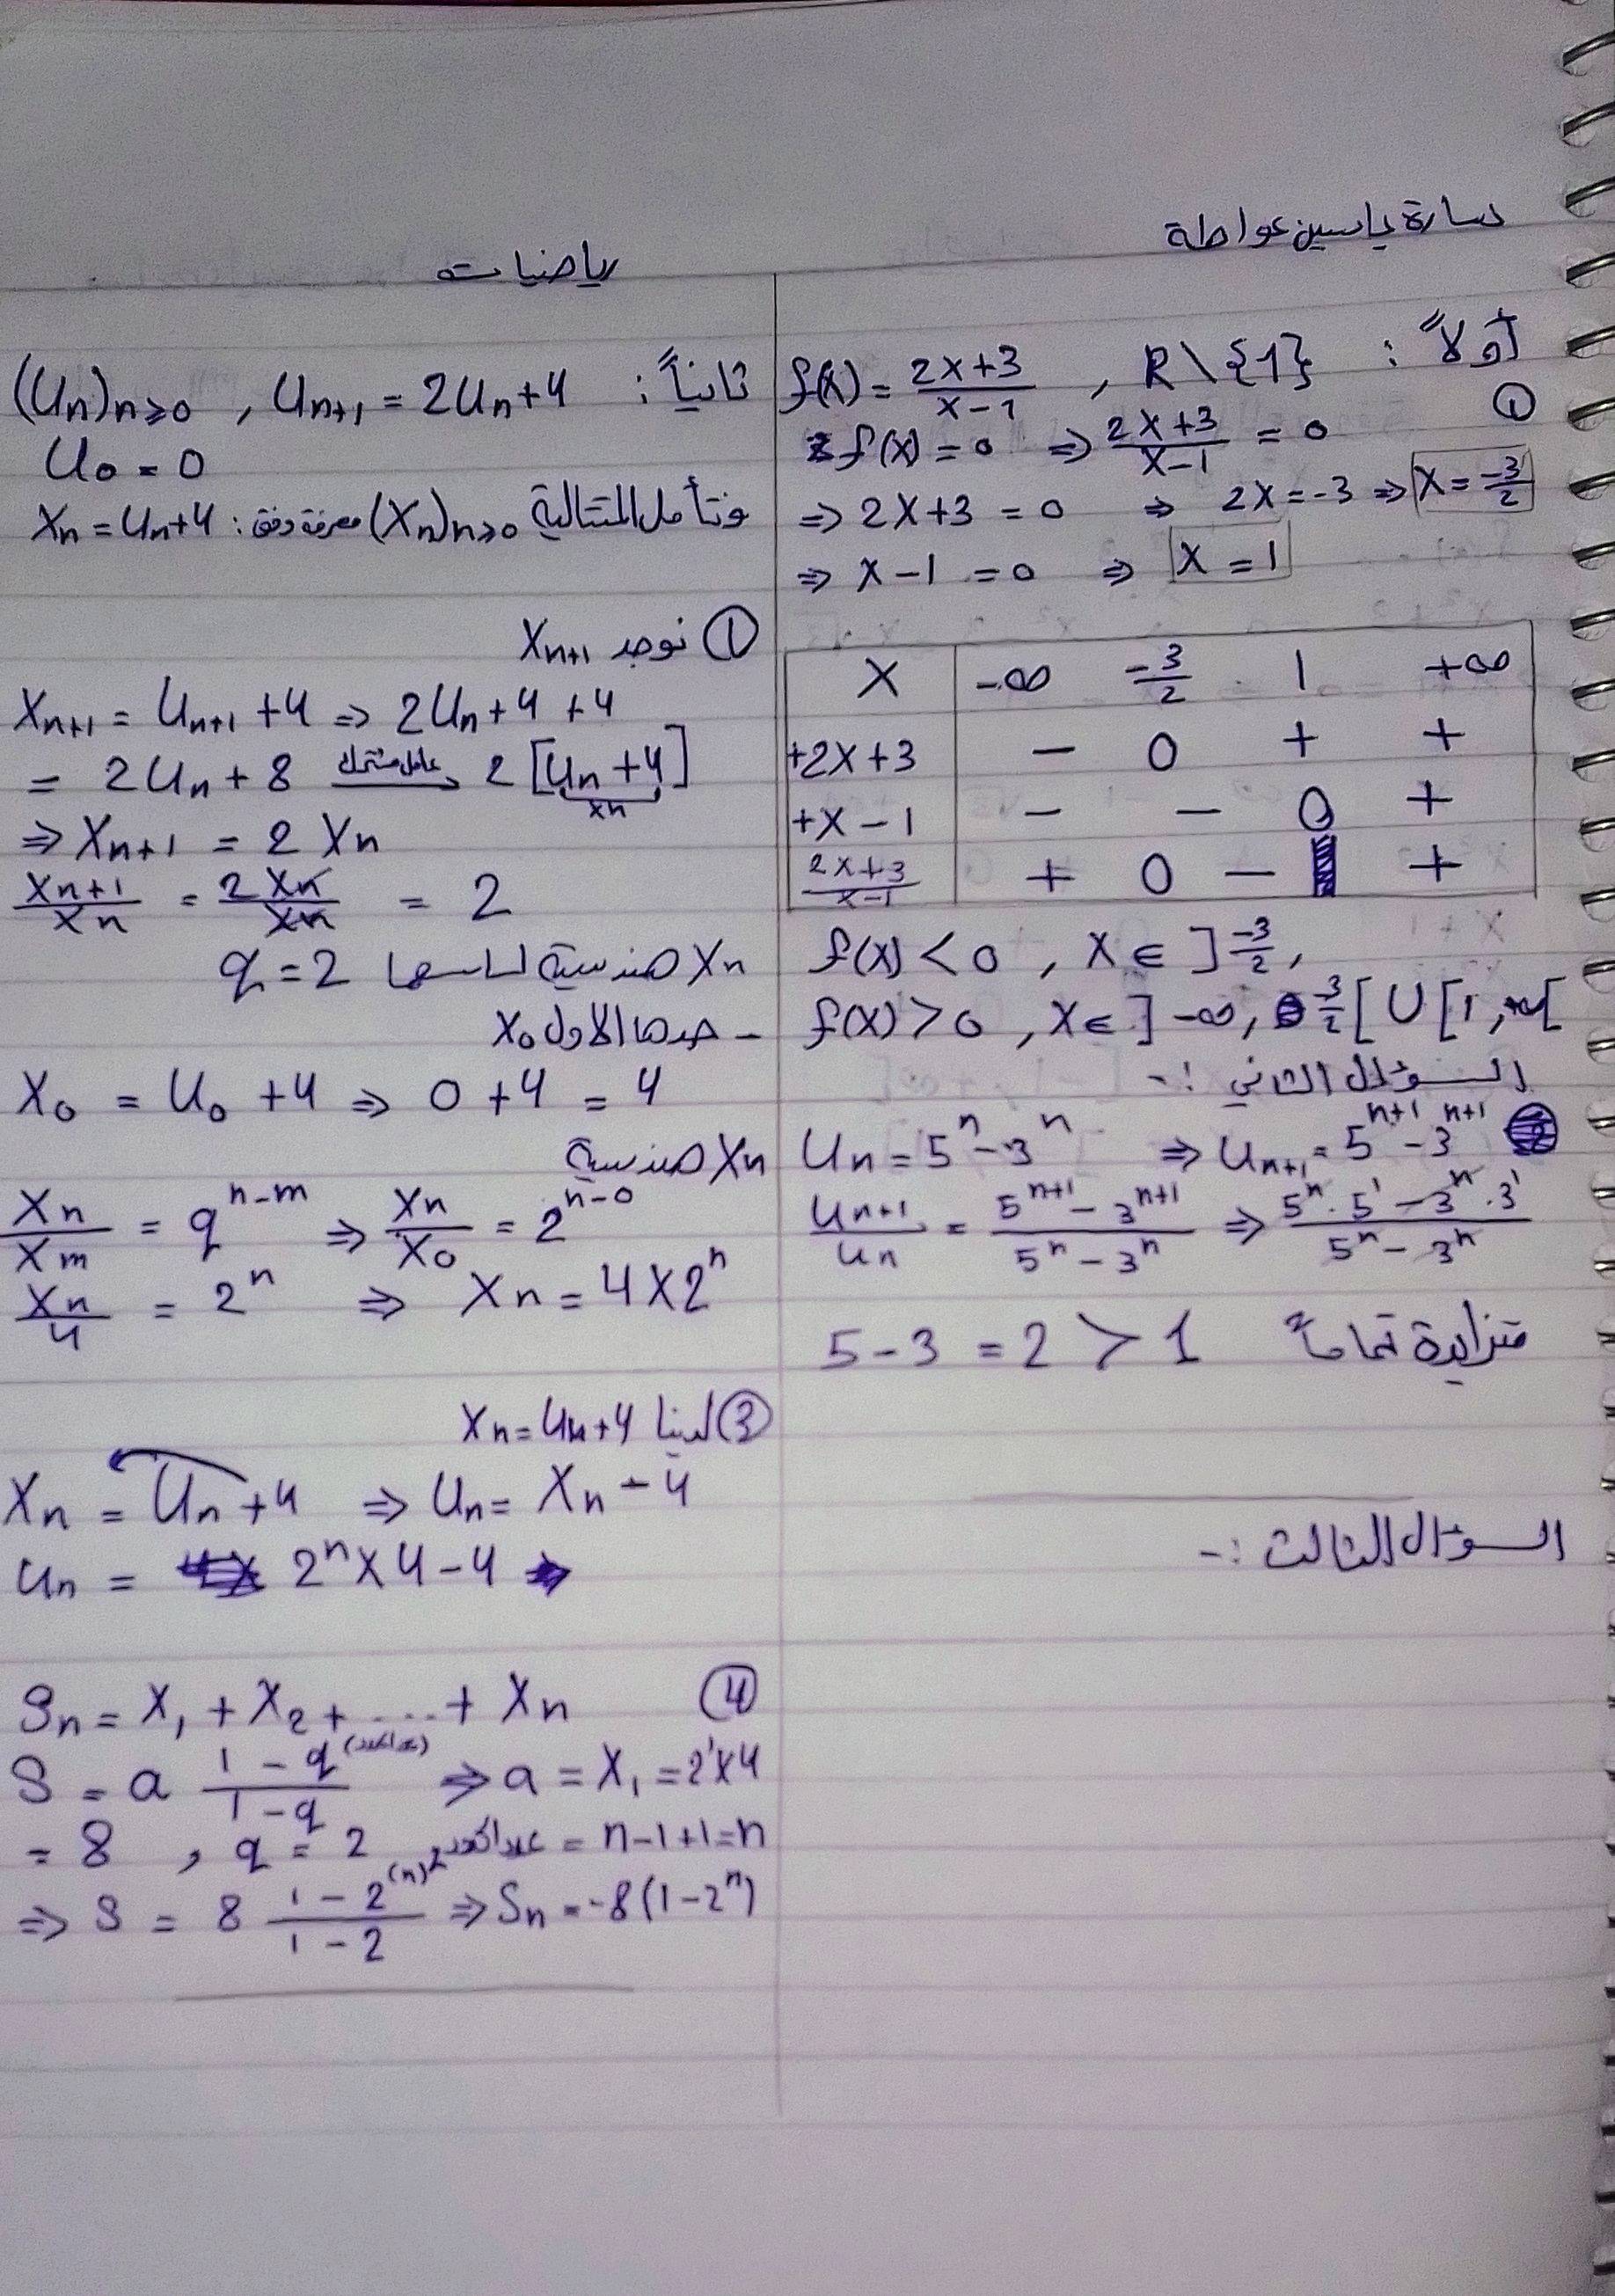 سارة ياسين عواطة
رياضيات
أولاً :
f(x) = \frac{2x+3}{x-1} , R \ {1}
①
f(x) = 0 ⇒ \frac{2x+3}{x-1} = 0
⇒ 2x+3 = 0 ⇒ 2x = -3 ⇒ x = \frac{-3}{2}
⇒ x-1 = 0 ⇒ x = 1
x | -∞ -\frac{3}{2} 1 +∞
+2x+3 | - 0 + +
+x-1 | - - 0 +
\frac{2x+3}{x-1} | + 0 - +
f(x) < 0 , x ∈ ] \frac{-3}{2} ,
f(x) > 0 , x ∈ ] -∞ , \frac{3}{2} [ U [ 1 , +∞ [
السؤال الثاني :-
Un = 5^n - 3^n ⇒ U_{n+1} = 5^{n+1} - 3^{n+1}
\frac{U_{n+1}}{U_n} = \frac{5^{n+1} - 3^{n+1}}{5^n - 3^n} ⇒ \frac{5^n . 5^1 - 3^n . 3^1}{5^n - 3^n}
5 - 3 = 2 > 1 متزايدة تماماً
السؤال الثالث :-
ثانياً :
(Un)n≥0 , U_{n+1} = 2Un+4
U0 = 0
ونتأمل المتتالية (Xn)n≥0 معرفة وفق : Xn = Un+4
① نوجد X_{n+1}
X_{n+1} = U_{n+1} + 4 ⇒ 2Un + 4 + 4
= 2Un + 8 عامل مشترك → 2 [Un + 4]
xn
⇒ X_{n+1} = 2 Xn
\frac{X_{n+1}}{Xn} = \frac{2Xn}{Xn} = 2
Xn هندسية اساسها q = 2
- حدها الاول X0
X0 = U0 + 4 ⇒ 0 + 4 = 4
Xn هندسية
\frac{Xn}{Xm} = q^{n-m} ⇒ \frac{Xn}{X0} = 2^{n-0}
\frac{Xn}{4} = 2^n ⇒ Xn = 4 × 2^n
③ لدينا Xn = Un+4
Xn = Un + 4 ⇒ Un = Xn - 4
Un = 2^n × 4 - 4
④
Sn = X1 + X2 + .... + Xn
S = a \frac{1 - q^{(عدد الحدود)}}{1 - q} ⇒ a = X1 = 2^1 × 4
= 8 , q = 2 عدد الحدود = n-1+1 = n
⇒ S = 8 \frac{1 - 2^{(n)}}{1 - 2} ⇒ Sn = -8(1-2^n)